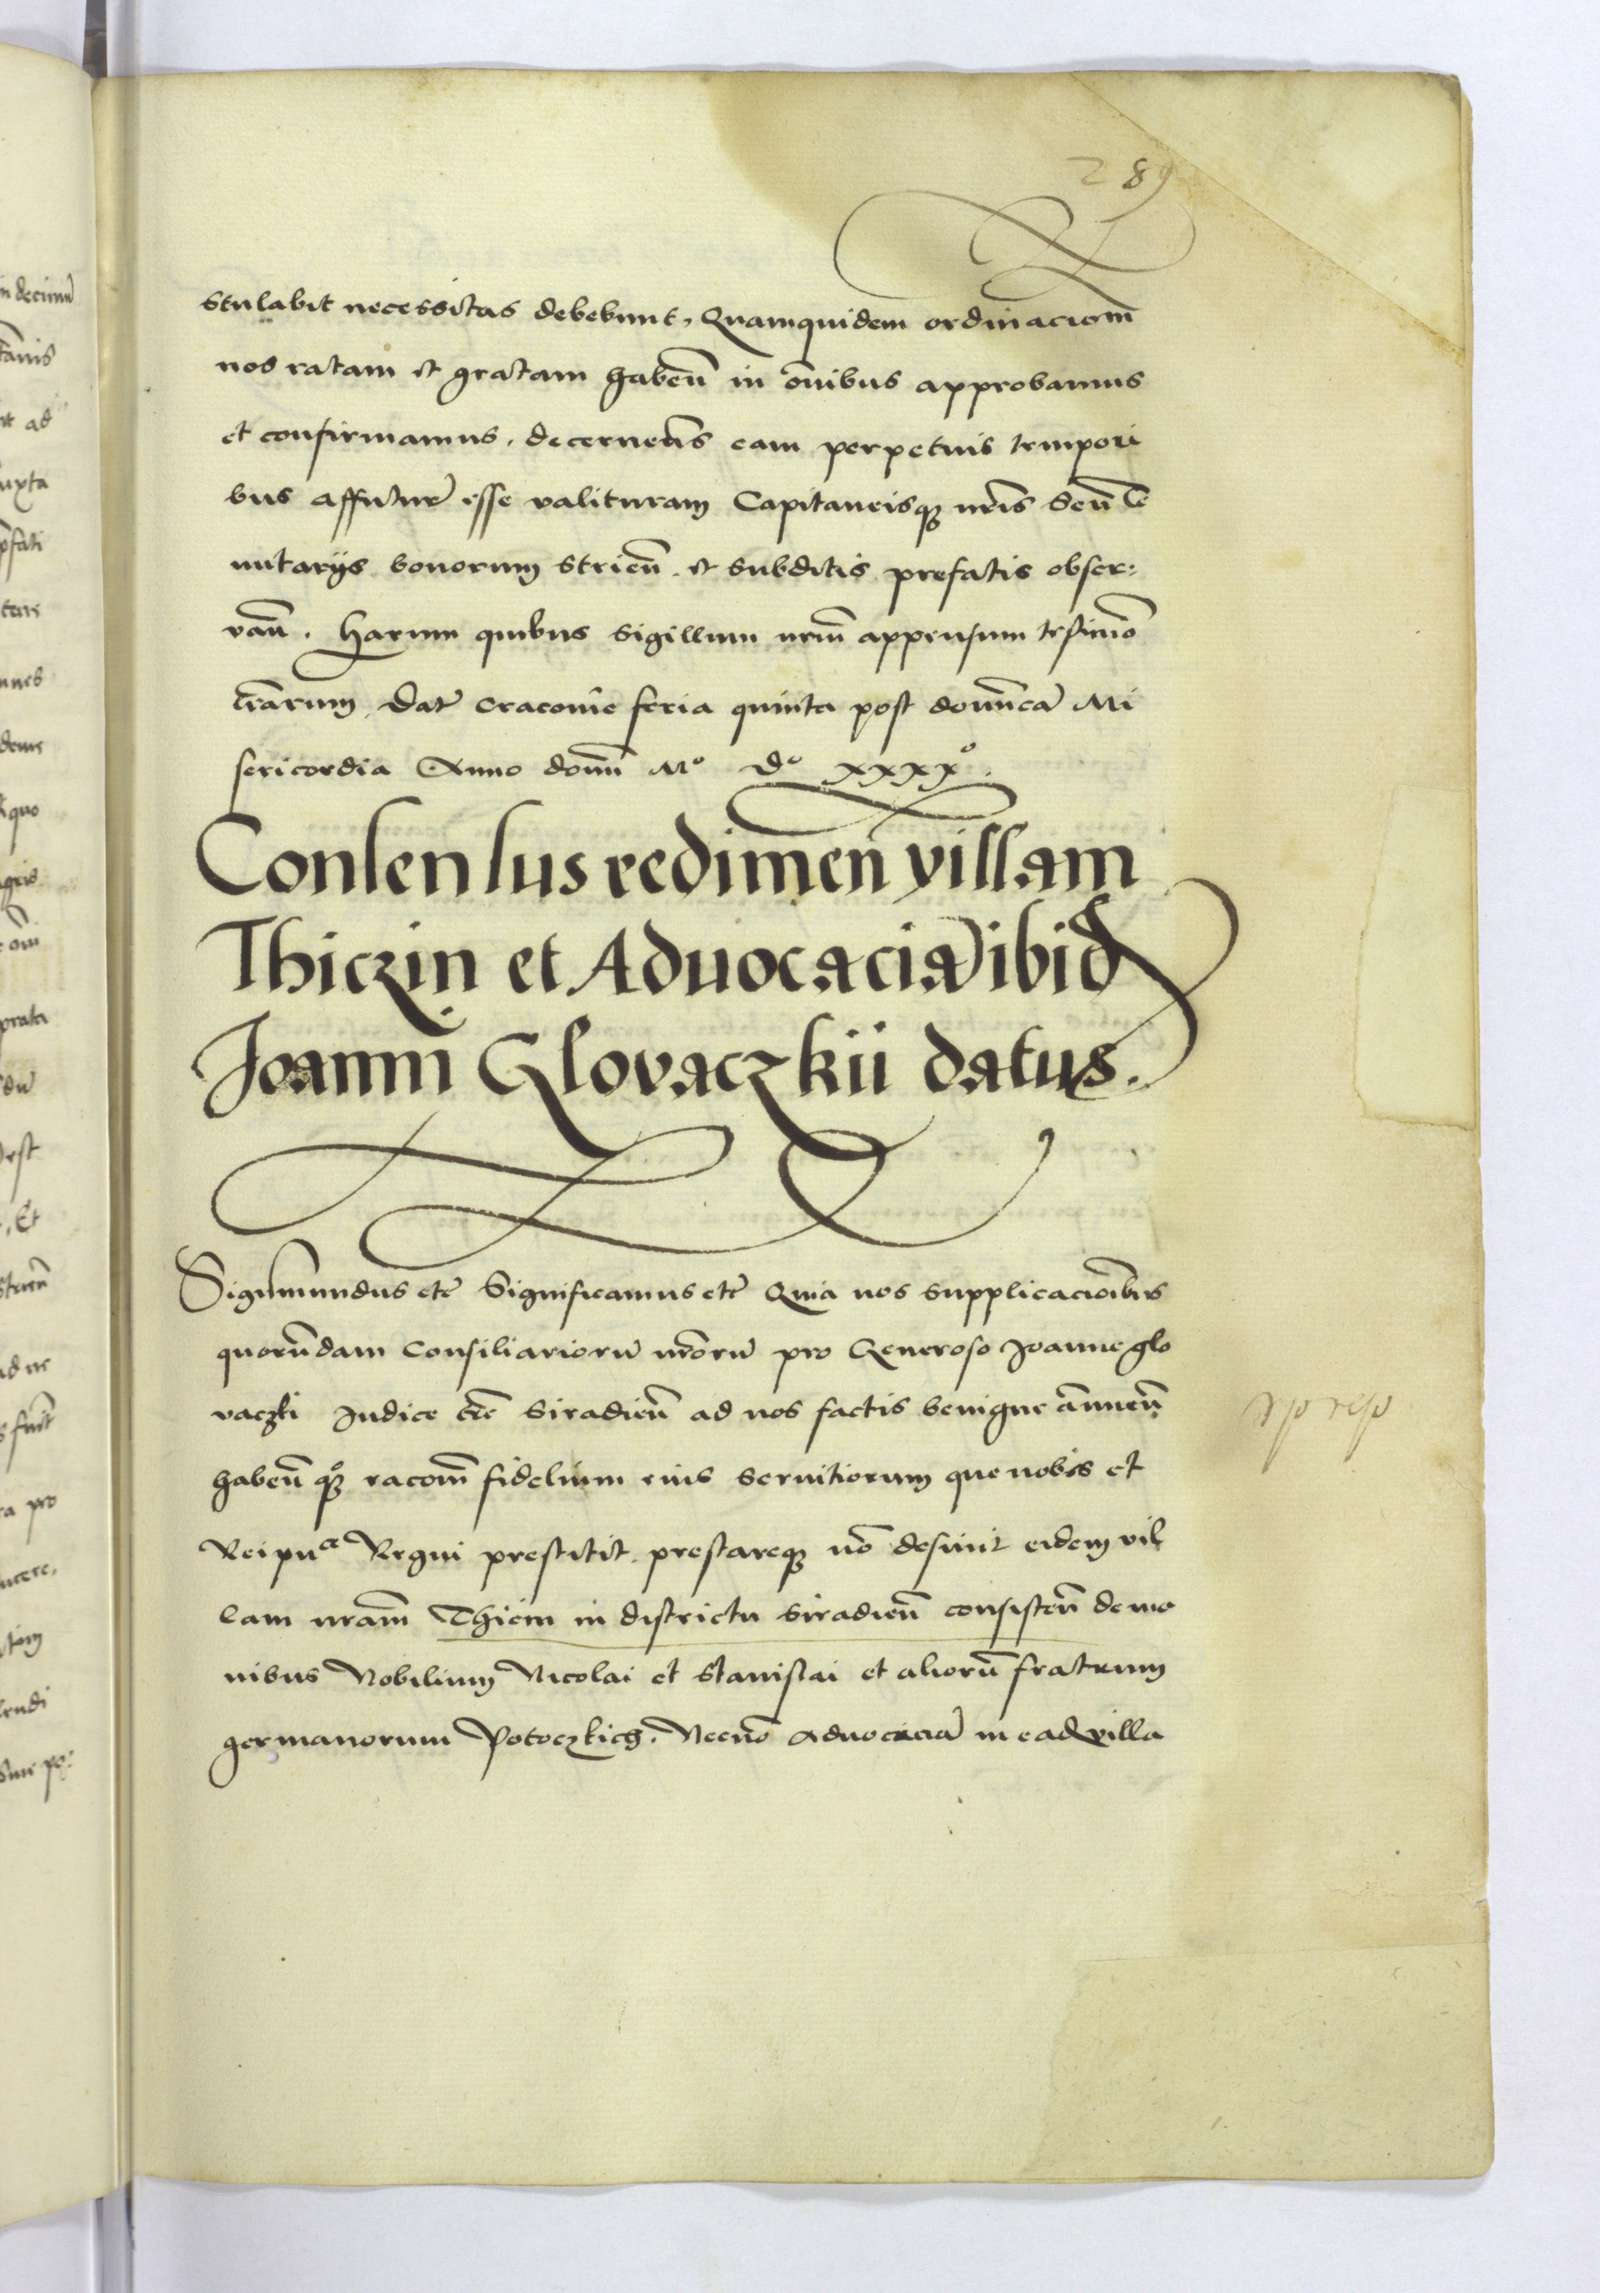 289
stulabit necessitas debebunt, Quamquidem ordinaciom̄
nos ratam et gratam haben̄ in om̄ibus approbamus
et confirmamus, decernen̄s eam perpetuis tempori
bus affutur̄ esse valituram Capitaneisqꝫ nr̄is Seu te
nutarijs bonorum Strien̄. et subditis prefatis obser:
van̄. Harum quibus Sigillum nr̄m appensum testimo͞
lr̄arum, Dat̄ Cracovie feria quinta post domīcā Mi
sericordia Anno domī Mº Dº xxxxº.
Consensus redimen̄ villam
Thiczin et Advocaciā ibid
Joanni Glovaczkii datus.
Sigismundus etc̄ Significamus etc̄ Quia nos supplicacioībus
quorūdam Consiliariorū nr̄orū pro Generoso Joanne glo
vaczki Judice tr̄e Siradien̄ ad nos factis benigne ānuen̄
haben̄ qꝫ racom̄ fidelium eius servitiorum que nobis et
Reipuce Regni prestitit, prestareqꝫ nō desinit eidem vil
lam nr̄am Thicin in districtu Siradien̄ consisten̄ de ma
nibus Nobilium Nicolai et Stanislai et aliorū fratrum
germanorum Potoczkich, Necnō Advocaciā in ead villa